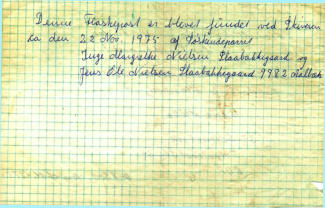 Denne Flaskepost er blevet fundet ved Skiveren
ca den 22 Nov. 1975 af Søskendeparret
Inge Margrethe Nielsen Staabakkegaard og
Jens Ole Nielsen Staabakkegaard 9982 Aalbæk